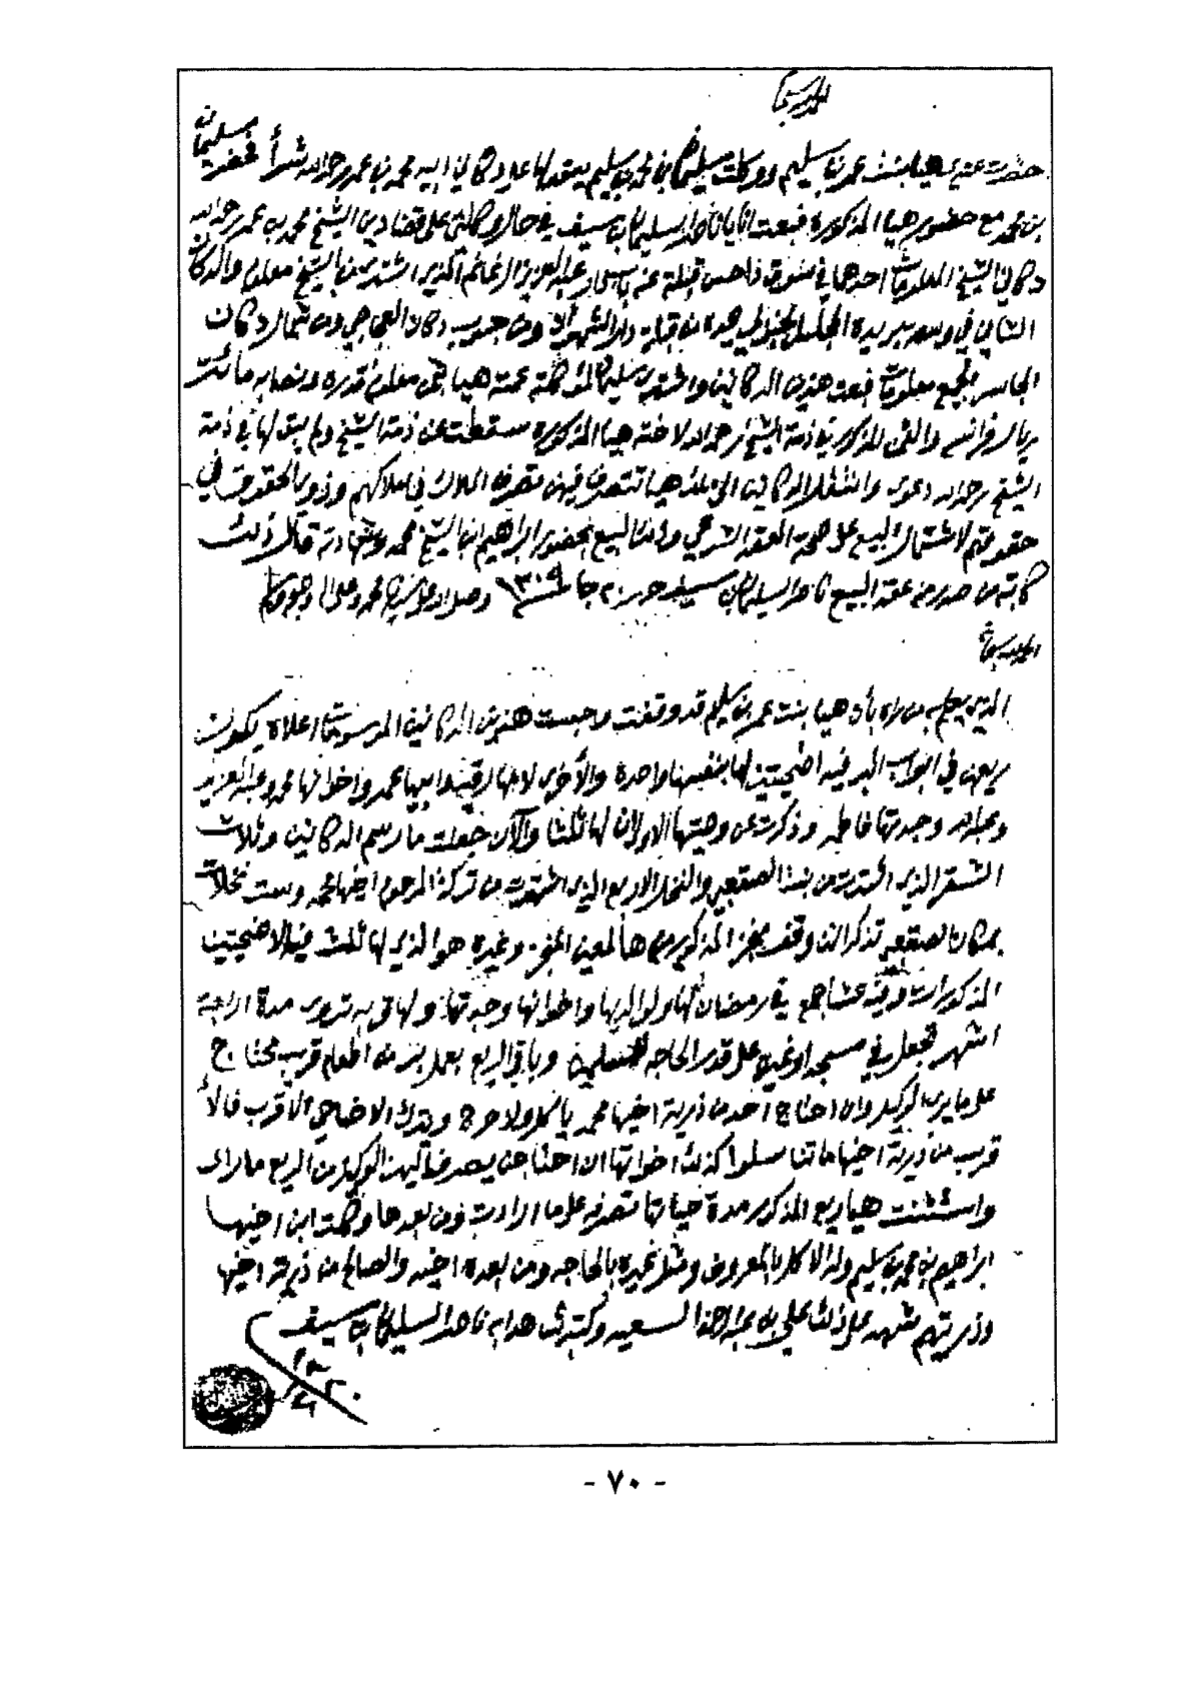 الحمد لله سبحانه
حضرت عندي هيا بنت عمر بن سليم ووكلت سليمان بن محمد بن سليم يعقد لها على دكانين ابيه محمد بن عمر رحمه الله شرأ فحضر سليمان
بن محمد مع حضور هيا المذكورة فبعت انا يا ناصر السليمان بن سيف في حال وكالتي على قضا دين الشيخ محمد بن عمر رحمه الله
دكانين الشيخ المعلومات احدها في سوق داحس قبلة عنه عبد العزيز الذي اشتري من الشيخ معلوم والدكان
الثاني في وسعة بريدة المجلس الجنوبي يحده من قبلة ومن جنوب دكان العجاجي ومن شمال دكان
الجاسر الجميع معلومات فبعت هذين الدكانين واشترى سليمان لموكلته عمته هيا بثمن معلوم قدره ونصابه مائتن
ريال فرانسه والثمن المذكور في ذمة الشيخ رحمه الله لاخته هيا المذكورة سقطت عن ذمة الشيخ ولم يبق لها في ذمة
الشيخ رحمه الله دعوى وانتقل الدكانين الى ملك هيا تتصرف فيهن تصرف الملاك في املاكهم وذوي الحقوق في
حقوقهم لاشتمال البيع على صحة العقد الشرعي وذلك البيع بحضور ابراهيم ابن الشيخ محمد وشهادته قال ذلك
كاتبه من صدر منه عقد البيع ناصر السليمان بن سيف حرر ٢٠ جا سنة ١٣٠٩ وصلى الله على محمد وعلى اله وصحبه وسلم
الحمد لله سبحانه
الذي يعلم به من يراه بأن هيا بنت عمر بن سليم قد وقفت وحبست هذين الدكانين المرسومات اعلاه يكون
ريعهن في ابواب البر فيه اضحيتين لها بنفسها واحدة والأخرى لامها رقية وابيها عمر واخوانها محمد وعبد العزيز
وعبد الله وجدتها فاطمه وذكرت عن وصيتها الاولة ان لها ثلث والآن جعلت ما رسم الدكانين وثلاث
الشقر الذي اشترت من الصقعبي والنخل الاربع الذي اشترت من تركة المرحوم اخيها محمد وست نخلات
بمكان الصقعبي تذكر انه وقف منجز المذكور من هالمعين المنجز وغيره هو الذي لها ثلث فيه الاضحيتين
المذكورات وفيه عشا جمع في رمضان لها ولوالديها واخوانها وجدتها ولها قربه تروى مدة اربعة
اشهر تجعل في مسجد او غيره على قدر الحاجه للمسلمين وباقي الريع يعمل بتز من اطعام قريب محتاج
على ما يرى الوكيل وان احتاج احد من ذرية اخيها محمد ياكل ولا حرج وبذلك الاضاحي الاقرب فالأ
قرب من ذرية اخيها ما تناسلوا كذلك اخواتها ان احتاجن يصرف اليهن الوكيل من الريع ما راى
واستثنت هيا ريع المذكور مدة حياتها تصرفه على ما ارادت ومن بعدها وكلت ابن اخيها
ابراهيم بن محمد بن سليم وله الاكل بالمعروف ومثل غيره بالحاجه ومن بعده اخيه والصالح من ذرية اخيها
وذريتهم شهد على ذلك علي بن عبد الله السعيد وكتبه شاهدا به ناصر السليمان بن سيف
- ٧٠ -